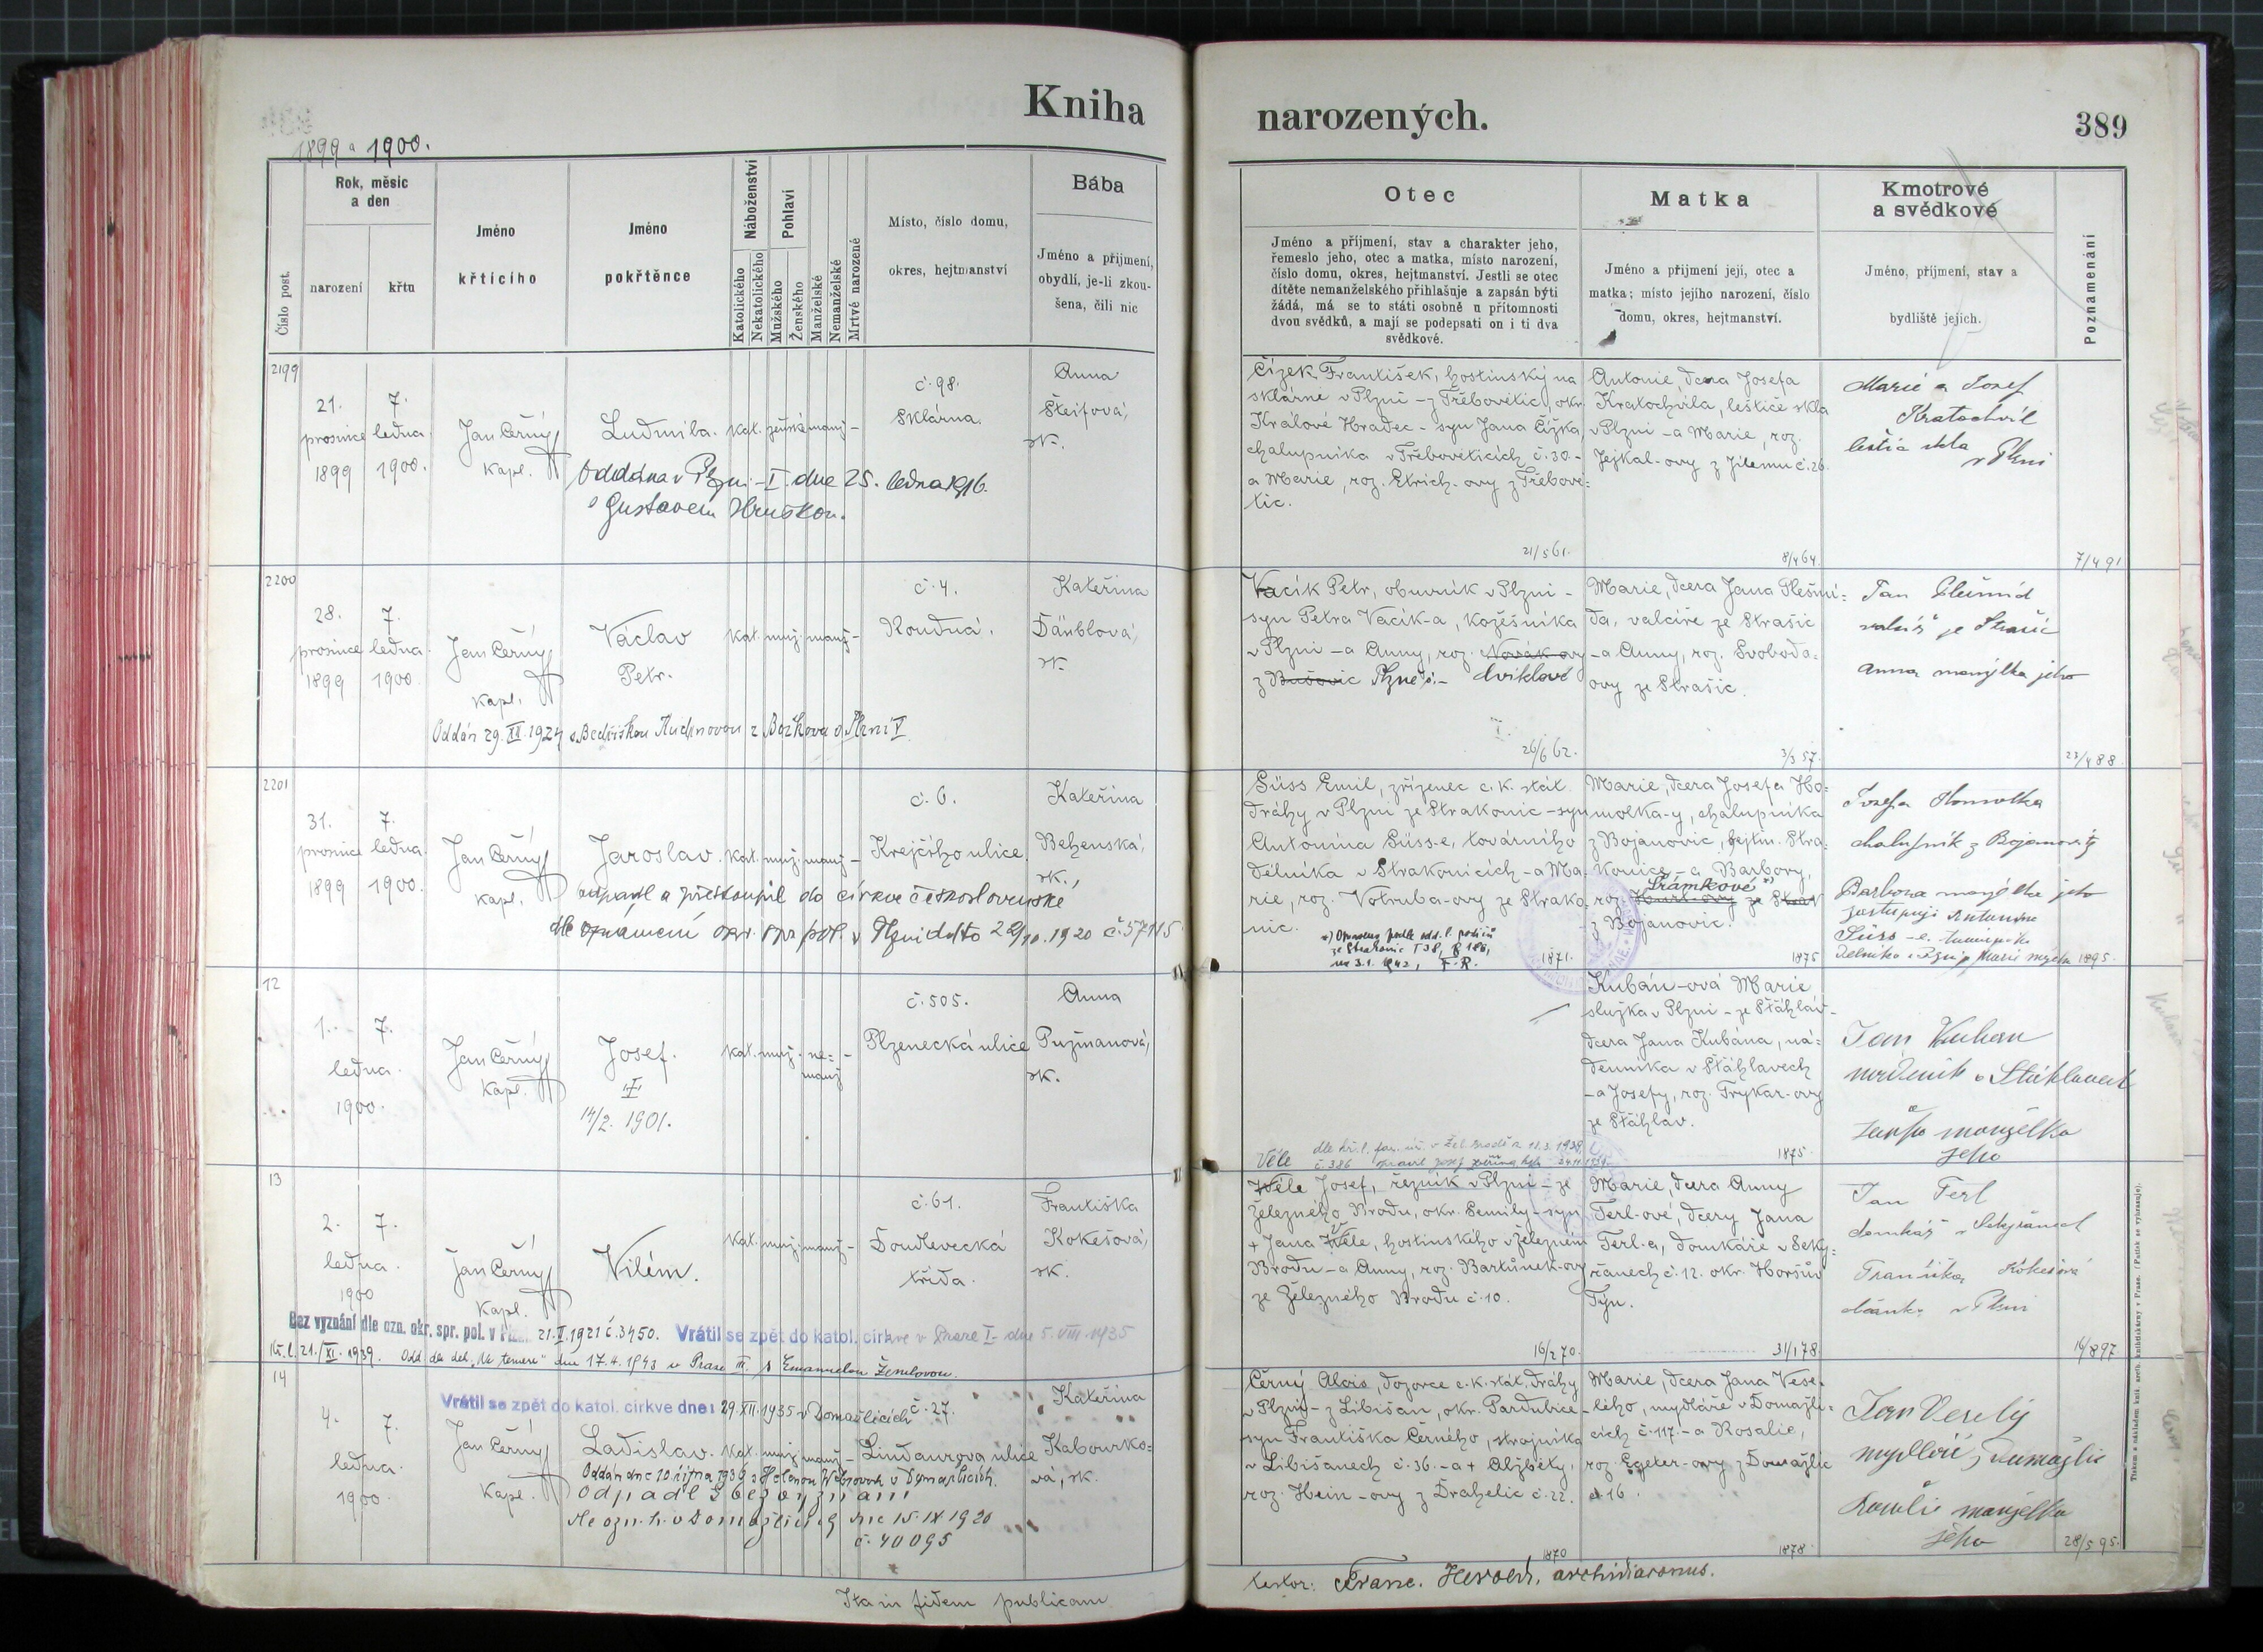 Kniha
narozených.
389
1899 a 1900.
Číslo post.
Rok, měsíc
a den
narození
křtu
Jméno
křtícího
Jméno
pokřtěnce
Náboženství
Katolického
Nekatolického
Pohlaví
Mužského
Ženského
Manželské
Nemanželské
Mrtvě narozené
Místo, číslo domu,
okres, hejtmanství
Bába
Jméno a příjmení,
obydlí, je-li zkou-
šena, čili nic
Otec
Jméno a příjmení, stav a charakter jeho,
řemeslo jeho, otec a matka, místo narození,
číslo domu, okres, hejtmanství. Jestli se otec
dítěte nemanželského přihlašuje a zapsán býti
žádá, má se to státi osobně u přítomnosti
dvou svědků, a mají se podepsati on i ti dva
svědkové.
Matka
Jméno a příjmení její, otec a
matka; místo jejího narození, číslo
domu, okres, hejtmanství.
Kmotrové
a svědkové
Jméno, příjmení, stav a
bydliště jejich.
Poznamenání
2199
21.
prosince
1899
7.
ledna
1900.
Jan Černý
kapl.
Ludmila.
kat. ženské manž -
Oddána v Plzni - I. dne 25. ledna 1916.
s Gustavem Hruškou.
č. 98.
Sklárna.
Anna
Šteifová,
zk.
Čížek František, hostinský na
sklárně v Plzni - z Třebovětic, okr.
Králové Hradec - syn Jana Čížka,
chalupníka v Třebověticích č. 30. -
a Marie, roz. Etrich-ovy z Třebově=
tic.
21/5 61.
Antonie, dcera Josefa
Kratochvíla, leštiče skla
v Plzni - a Marie, roz.
Jejkal-ovy z Jilemu č. 26.
8/4 64.
Marie a Josef
Kratochvíl
leštič skla
v Plzni
7/4 91
2200
28.
prosince
1899
7.
ledna.
1900.
Jan Černý
kapl.
Václav
Petr.
kat. muž. manž -
Oddán 29. XII. 1924 s Bedřiškou z Božkova v Plzni V
č. 4.
Roudná.
Kateřina
Dänblová,
zk.
Vacík Petr, obuvník v Plzni -
syn Petra Vacík-a, kožešníka
v Plzni - a Anny, roz. Novák-ovy
z Bušovic Plzně - Cviklové
26/6 62.
Marie, dcera Jana Plešmí=
da, valcíře ze Strašic
- a Anny, roz. Svoboda=
ovy ze Strašic.
3/3 57.
Jan Plešmíd
valcíř ze Strašic
Anna manželka jeho
23/4 88.
2201
31.
prosince
1899
7.
ledna.
1900.
Jan Černý
kapl.
Jaroslav.
kat. muž. manž -
odpadl a přestoupil do církve československé
dle oznámení okr. spr. pol. v Plzni ddto 29/10. 1920 č. 57115
č. 6.
Krejčího ulice.
Kateřina
Behenská,
zk.,
Süss Emil, zřízenec c. k. stát.
dráhy v Plzni ze Strakonic - syn
Antonína Süss-e, továrního
dělníka v Strakonicích - a Ma=
rie, roz. Votruba-ovy ze Strako=
nic.
1871.
Marie, dcera Josefa Ho=
molka-y, chalupníka
z Bojanovic, hejtm. Stra=
konice - a Barbory,
Šrámkové
roz.
z Bojanovic.
1875
Josefa Homolka
chalupník z Bojanovic
Barbora manželka jeho
zastupují Antonín
Süss
Marie 1895.
12
1.
ledna.
1900.
7.
Jan Černý
kapl.
Josef.
14/2. 1901.
kat. muž. ne=
manž -
č. 505.
Plzenecká ulice
Anna
Pužmanová,
zk.
Kubán-ová Marie
služka v Plzni - ze Šťáhlav -
dcera Jana Kubána, ná=
denníka v Šťáhlavech
- a Josefy, roz. Frykar-ovy
ze Šťáhlav.
1875.
Jan Kuban
nádeník v Šťáhlavech
Josefa manželka
jeho
13
2.
ledna.
1900
7.
Jan Černý
kapl.
Vilém.
kat. muž. manž -
Bez vyznání dle ozn. okr. spr. pol. v Plzni 21. V. 1921 č. 3450. Vrátil se zpět do katol. církve v Praze I - dne 5. VIII. 1935
Kř. l. 21./XI. 1939. Odd. dne 17.4.1943 v Praze III. s Emanuelou
č. 61.
Doudlevecká
třída.
Františka
Kokešová,
zk.
Véle
Wéle Josef, řezník v Plzni - ze
Železného Brodu, okr. Semily - syn
+ Jana Wéle, hostinského v Železném
Brodu - a Anny, roz. Bartůnek-ovy
ze Železného Brodu č. 10.
16/2 70.
Marie, dcera Anny
Terl-ové, dcery Jana
Terl-a, domkáře v Seky=
řanech č. 12. okr. Horšův
Týn.
31/1 78.
Jan Terl
domkář v Sekyřanech
Františka Kokešová
v Plzni
16/8 97
14
4.
ledna.
1900.
7.
Jan Černý
kapl.
Vrátil se zpět do katol. církve dne: 29. XII. 1935 v Domažlicích
Ladislav.
kat. muž. manž -
Oddán dne 10. října 1936 s Helenou v Domažlicích.
Odpadl = bez vyznání
dle ozn. h. v Domažlicích dne 15. IX 1920
č. 40095
č. 27.
Lindaurova ulice
Kateřina
Kabourko=
vá, zk.
Černý Alois, dozorce c. k. stát. dráhy
v Plzni - z Libišan, okr. Pardubice -
syn Františka Černého, strojníka
v Libišanech č. 36. - a + Alžběty,
roz. Hein-ovy z Dražlic č. 22.
1870
Marie, dcera Jana Vese=
lého, mydláře v Domažli=
cích č. 117. - a Rosalie,
roz. Egeter-ovy z Domažlic
č. 16.
1878.
Jan Veselý
mydlář z Domažlic
Rosalie manželka
jeho
28/5 95.
Ita in fidem publicam
testor: Franc. Herold, archidiaconus.